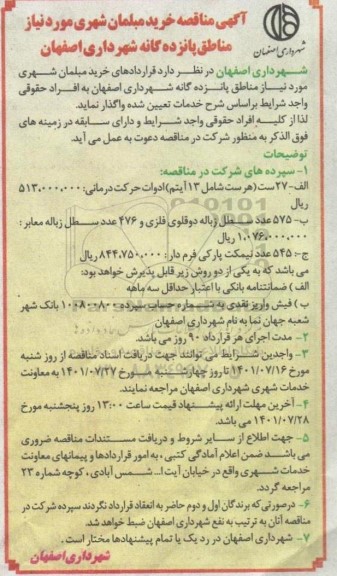 آگهی مناقصه خرید مبلمان شهری مورد نیاز
مناطق پانزده گانه شهرداری اصفهان
شهرداری اصفهان
شهرداری اصفهان در نظر دارد قراردادهای خرید مبلمان شهری
مورد نیاز مناطق پانزده گانه شهرداری اصفهان به افراد حقوقی
واجد شرایط براساس شرح خدمات تعیین شده واگذار نماید.
لذا از کلیه افراد حقوقی واجد شرایط و دارای سابقه در زمینه های
فوق الذکر به منظور شرکت در مناقصه دعوت به عمل می آید.
توضیحات
۱- سپرده های شرکت در مناقصه:
الف- ۲۷ ست (هر ست شامل ۱۳ آیتم) ادوات حرکت درمانی: ۵۱۳,۰۰۰,۰۰۰
ریال
ب- ۵۷۵ عدد سطل زباله دوقلوی فلزی و ۴۷۶ عدد سطل زباله معابر :
۱,۰۷۶,۰۰۰,۰۰۰ ریال
ج- ۵۴۵ عدد نیمکت پارکی فرم دار : ۸۴۴,۷۵۰,۰۰۰ ریال
می باشد که به یکی از دو روش زیر قابل پذیرش خواهد بود:
الف ) ضمانتنامه بانکی با اعتبار حداقل سه ماهه
ب ) فیش واریز نقدی به شماره حساب سپرده ۱۰۰۸۰۰۸۰۰ بانک شهر
شعبه جهان نما به نام شهرداری اصفهان
۲- مدت اجرای هر قرارداد ۹۰ روز می باشد.
۳- واجدین شرایط می توانند جهت دریافت اسناد مناقصه از روز شنبه
مورخ ۱۴۰۱/۰۷/۱۶ تا روز چهارشنبه مورخ ۱۴۰۱/۰۷/۲۷ به معاونت
خدمات شهری شهرداری اصفهان مراجعه نمایند.
۴- آخرین مهلت ارائه پیشنهاد قیمت ساعت ۱۳:۰۰ روز پنجشنبه مورخ
۱۴۰۱/۰۷/۲۸ می باشد.
۵- جهت اطلاع از سایر شروط و دریافت مستندات مناقصه ضروری
می باشد ضمن اعلام آمادگی کتبی ، به امور قراردادها و پیمانهای معاونت
خدمات شهری واقع در خیابان آیت ا... شمس آبادی ، کوچه شماره ۲۳
مراجعه گردد.
۶- درصورتی که برندگان اول و دوم حاضر به انعقاد قرارداد نگردند سپرده شرکت در
مناقصه آنان به ترتیب به نفع شهرداری اصفهان ضبط خواهد شد.
۷- شهرداری اصفهان در رد یک یا تمام پیشنهادها مختار است .
شهرداری اصفهان